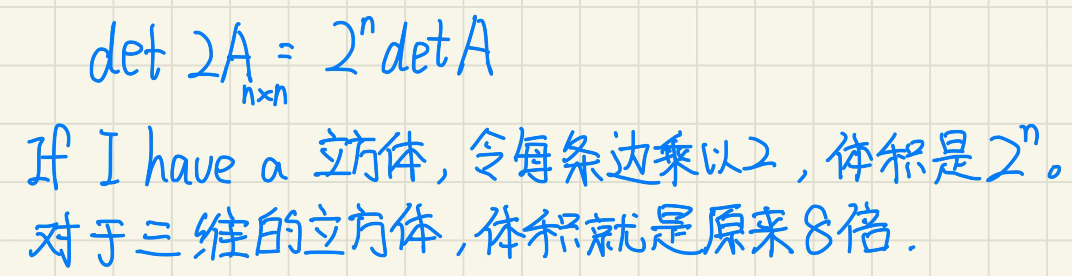 det 2A_{n×n} = 2^n det A
If I have a 立方体,令每条边乘以2,体积是2^n。
对于三维的立方体,体积就是原来8倍.